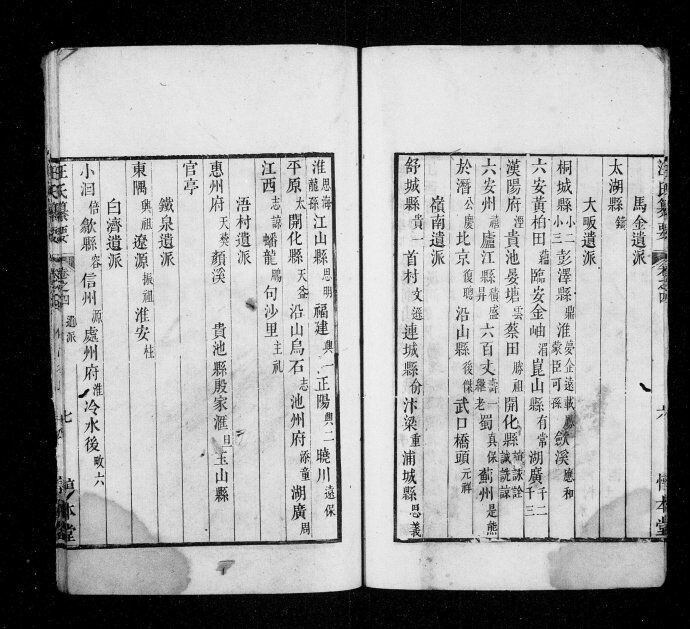 馬金遺派
太湖縣鐃
大畈遺派
桐城縣小二小三彭澤縣鼎淮晏企遠載勝蒙臣可孫歙溪應和
六安黃柏田蘊臨安金岫湄崑山縣有常湖廣千二千三
漢陽府湮貴池晏塘雲蔡田勝祖開化縣
六安州禧廬江縣積盛昇六百丈壽一繼老蜀真保蘄州是熊
於潛公慶北京復聰沿山縣後傑武口橋頭元祥
嶺南遺派
舒城縣貴一首村文遜連城縣份汴梁重浦城縣恩義
淮恩海龍孫江山縣思明福建興一正陽興二曉川遠保
平原太開化縣天益沿山烏石志池州府添童湖廣周
江西志諒蟠龍鵬句沙里主礼
浯村遺派
惠州府天爕顏溪貴池縣殷家滙旦玉山縣
官亭
鐵泉遺派
東隅興祖遼源振祖淮安柱
白濟遺派
小洄倍歙縣容信州源處州府淮冷水後畋六
汪氏纂要 卷之四 遺派 七 惇本堂